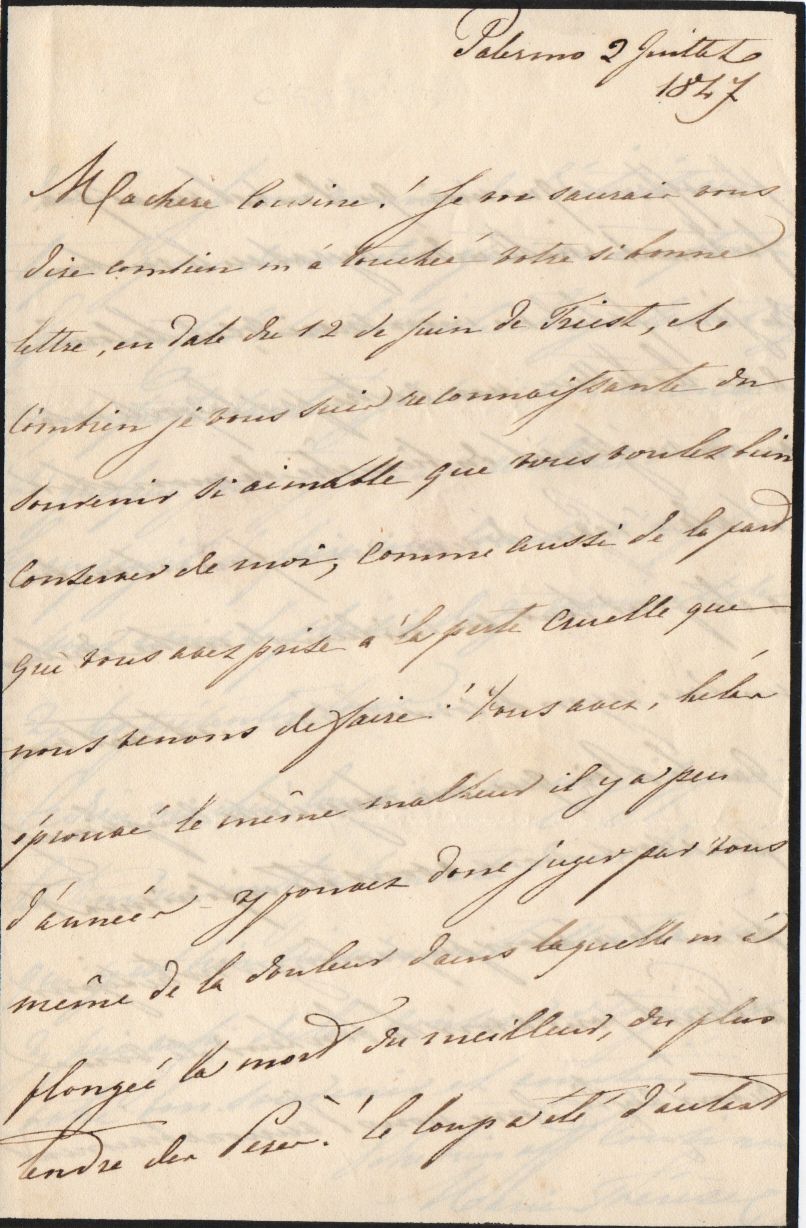 Palermo 2 Juillet
1847
Ma chere Cousine! Je ne saurais vous
dire combien m'a touchée votre si bonne
lettre, en date du 12 de Juin de Triest, et
Combien je vous suis reconnaissante du
souvenir si aimable que vous voulez bien
Conserver de moi, comme aussi de la part
que vous avez prise à la perte cruelle que
nous venons de faire! Vous avez, hélas
éprouvé le même malheur il y a peu
d'années y pouvez donc juger par vous
même de la douleur dans laquelle m'à
plongée la mort du meilleur, du plus
tendre des Peres! le coup a été d'autant